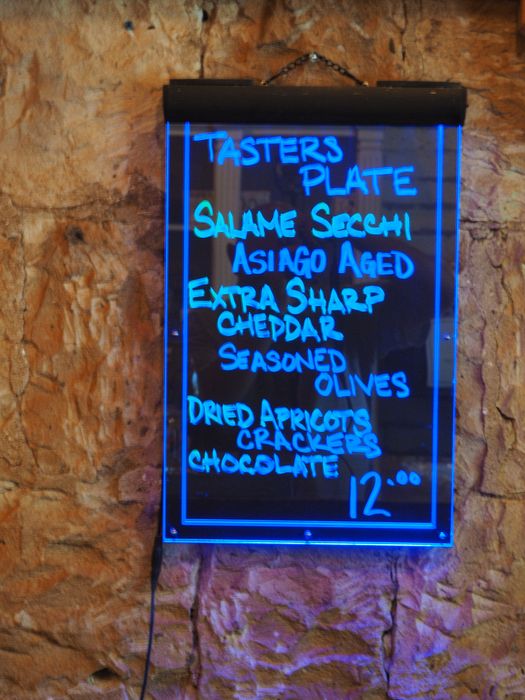 TASTERS
PLATE
SALAME SECCHI
ASIAGO AGED
EXTRA SHARP
CHEDDAR
SEASONED
OLIVES
DRIED APRICOTS
CRACKERS
CHOCOLATE
12.00